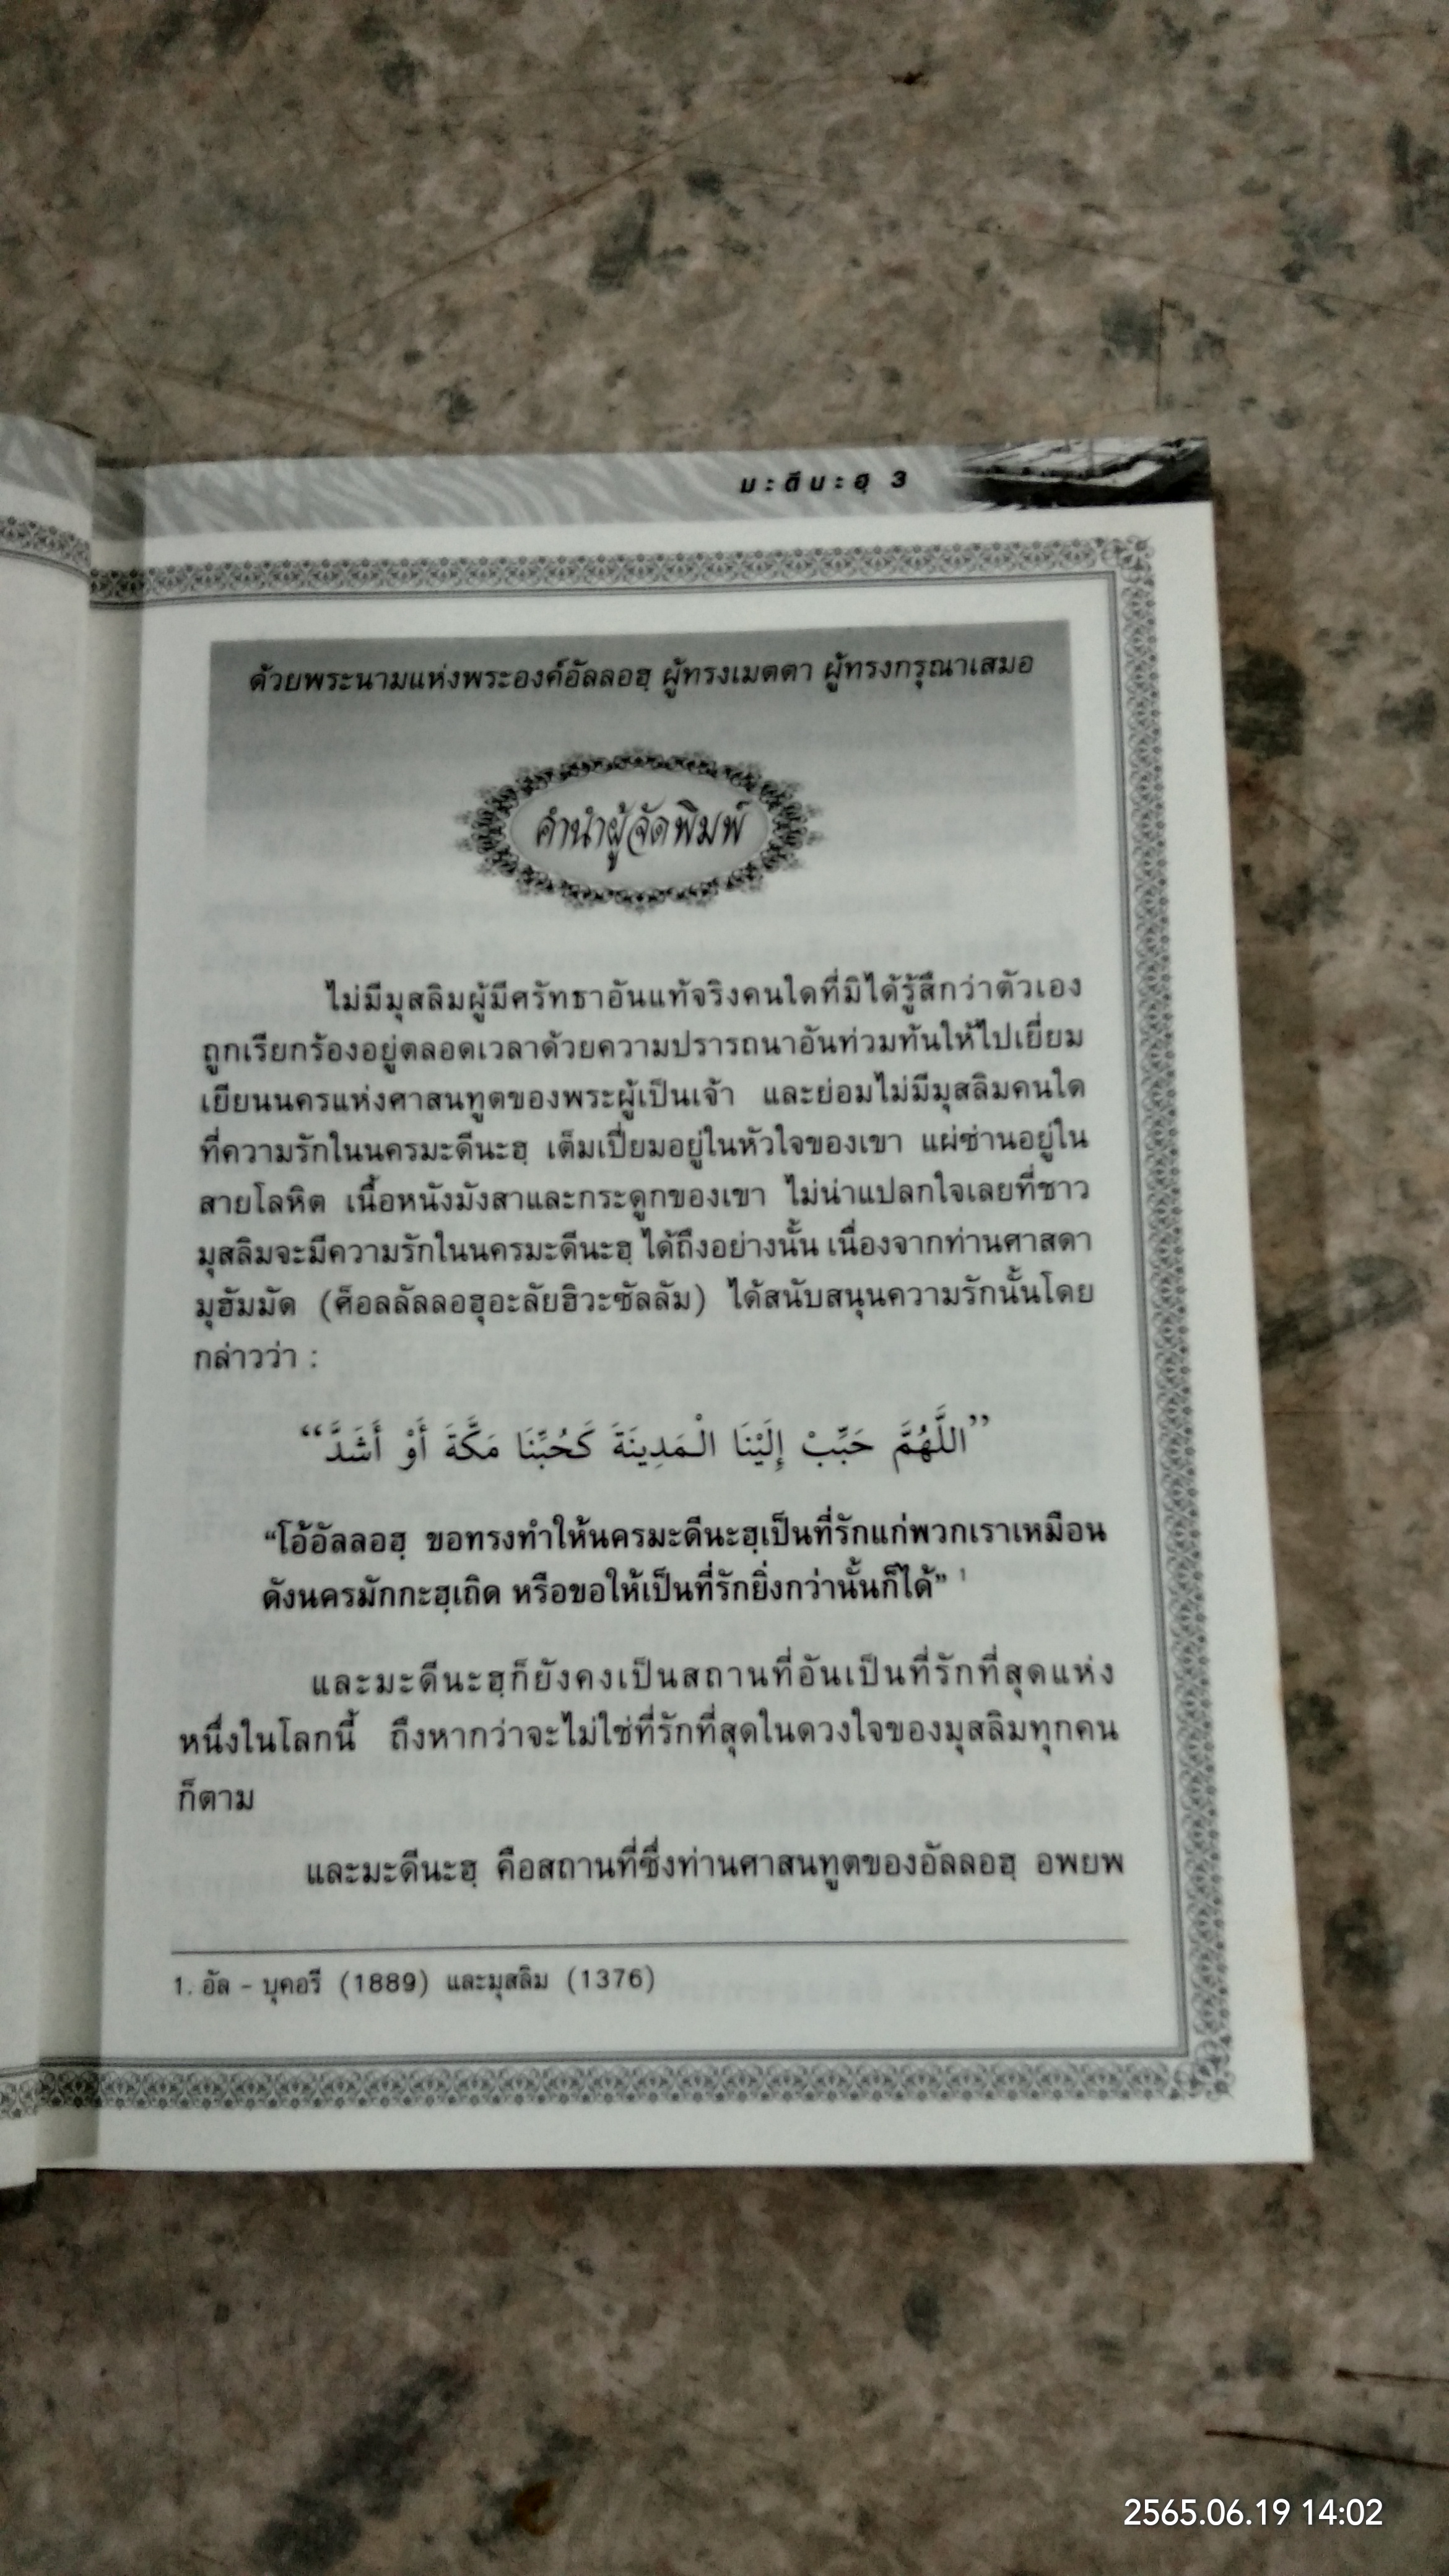 มะดีนะฮฺ 3
ด้วยพระนามแห่งพระองค์อัลลอฮฺ ผู้ทรงเมตตา ผู้ทรงกรุณาเสมอ
คำนำผู้จัดพิมพ์
ไม่มีมุสลิมผู้มีศรัทธาอันแท้จริงคนใดที่มิได้รู้สึกว่าตัวเอง
ถูกเรียกร้องอยู่ตลอดเวลาด้วยความปรารถนาอันท่วมท้นให้ไปเยี่ยม
เยียนนครแห่งศาสนทูตของพระผู้เป็นเจ้า และย่อมไม่มีมุสลิมคนใด
ที่ความรักในนครมะดีนะฮฺ เต็มเปี่ยมอยู่ในหัวใจของเขา แผ่ซ่านอยู่ใน
สายโลหิต เนื้อหนังมังสาและกระดูกของเขา ไม่น่าแปลกใจเลยที่ชาว
มุสลิมจะมีความรักในนครมะดีนะฮฺ ได้ถึงอย่างนั้น เนื่องจากท่านศาสดา
มุฮัมมัด (ศ็อลลัลลอฮุอะลัยฮิวะซัลลัม) ได้สนับสนุนความรักนั้นโดย
กล่าวว่า :
”اللَّهُمَّ حَبِّبْ إِلَيْنَا الْمَدِينَةَ كَحُبِّنَا مَكَّةَ أَوْ أَشَدَّ“
“โอ้อัลลอฮฺ ขอทรงทำให้นครมะดีนะฮฺเป็นที่รักแก่พวกเราเหมือน
ดังนครมักกะฮฺเถิด หรือขอให้เป็นที่รักยิ่งกว่านั้นก็ได้” 1
และมะดีนะฮฺก็ยังคงเป็นสถานที่อันเป็นที่รักที่สุดแห่ง
หนึ่งในโลกนี้ ถึงหากว่าจะไม่ใช่ที่รักที่สุดในดวงใจของมุสลิมทุกคน
ก็ตาม
และมะดีนะฮฺ คือสถานที่ซึ่งท่านศาสนทูตของอัลลอฮฺ อพยพ
1. อัล - บุคอรี (1889) และมุสลิม (1376)
2565.06.19 14:02